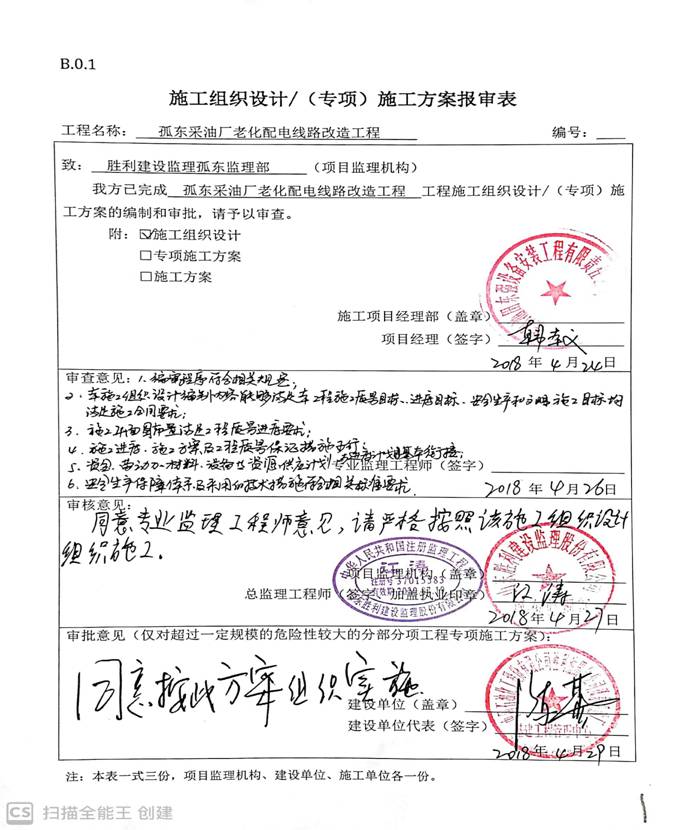 B.0.1
施工组织设计/（专项）施工方案报审表
工程名称： 孤东采油厂老化配电线路改造工程 编号：
致： 胜利建设监理孤东监理部 （项目监理机构）
我方已完成 孤东采油厂老化配电线路改造工程 工程施工组织设计/（专项）施
工方案的编制和审批，请予以审查。
附：☑施工组织设计
□专项施工方案
□施工方案
施工项目经理部（盖章）
项目经理（签字）
2018 年 4 月 24 日
审查意见：1、编审程序符合相关规定；
2、本施工组织设计编制内容能够满足本工程施工质量目标、进度目标、安全生产和文明施工目标均
满足施工合同要求；
3、施工平面图布置满足工程质量进度要求；
4、施工进度、施工方案及工程质量保证措施可行；
5、资金、劳动力、材料、设备等资源供应计划
专业监理工程师（签字）
6、安全生产保障体系及采用的技术措施符合相关标准要求
2018 年 4 月 26 日
审核意见：
同意专业监理工程师意见，请严格按照该施工组织设计
组织施工。
中华人民共和国注册监理工程师
江涛
注册号 37015983
项目监理机构（盖章）
总监理工程师（签字、加盖执业印章）
江涛
2018 年 4 月 27 日
审批意见（仅对超过一定规模的危险性较大的分部分项工程专项施工方案）：
同意按此方案组织实施
建设单位（盖章）
建设单位代表（签字）
2018 年 4 月 29 日
注：本表一式三份，项目监理机构、建设单位、施工单位各一份。
CS 扫描全能王 创建